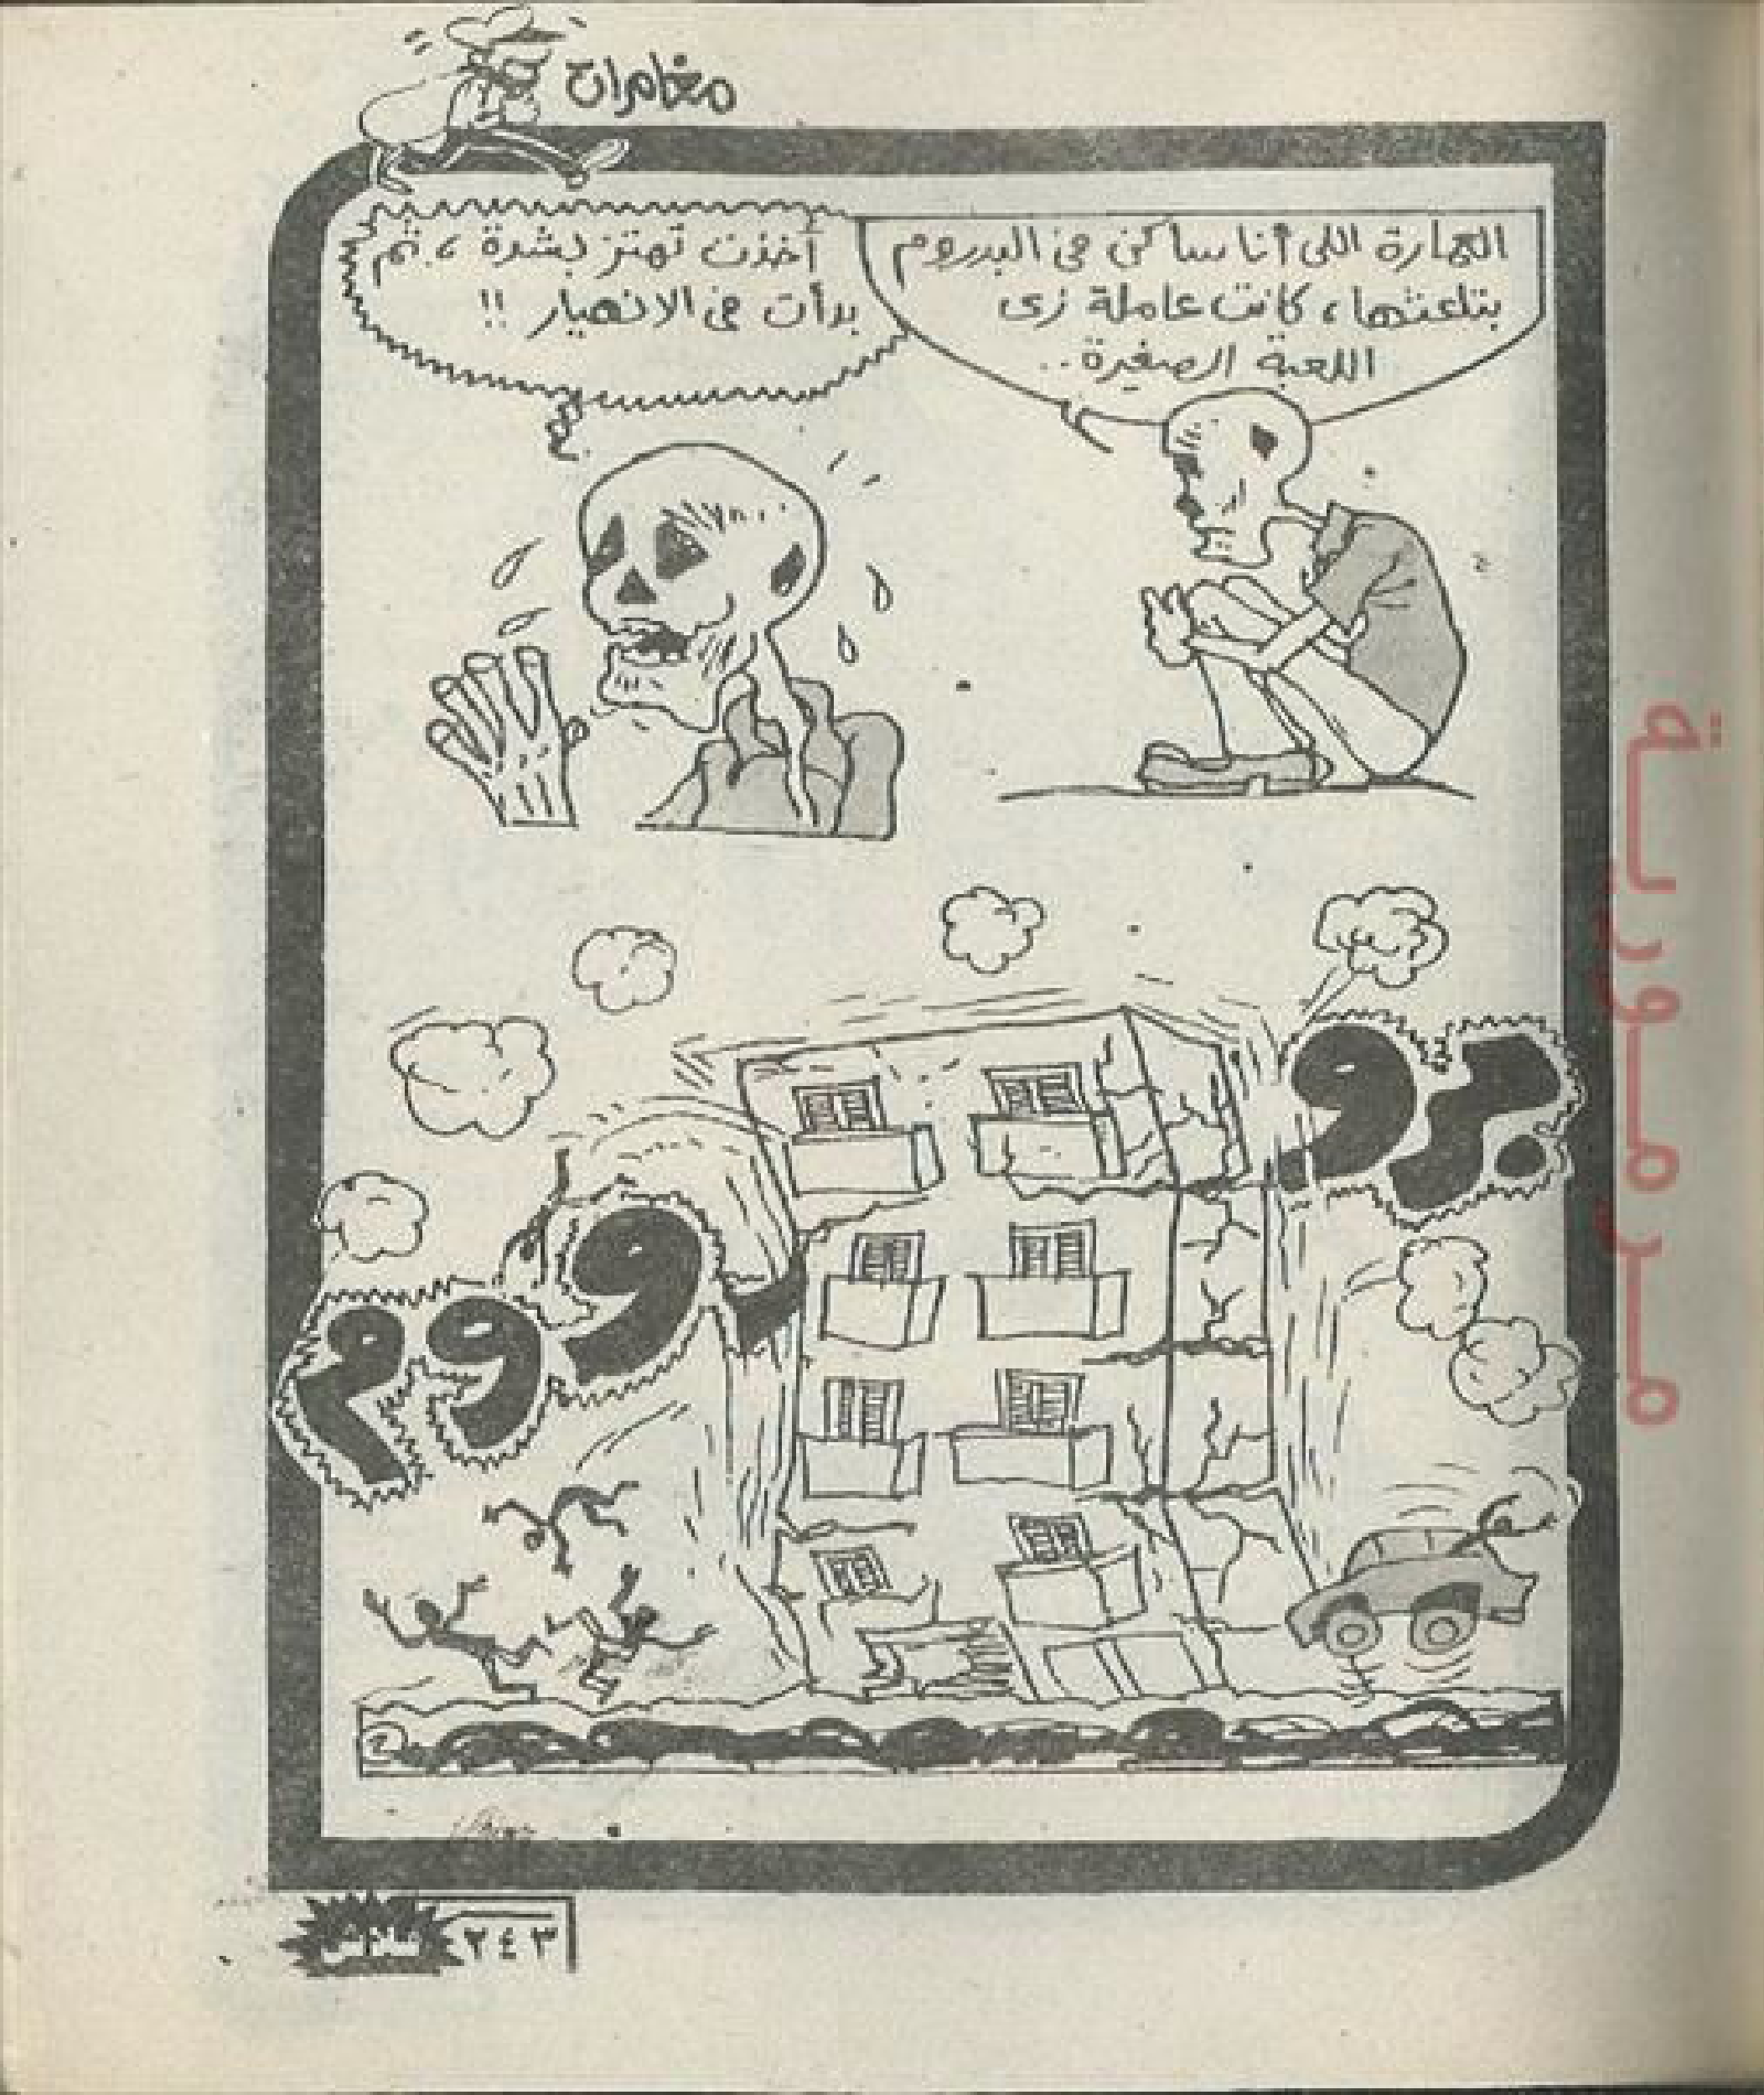 مغامرات
العمارة اللى أنا ساكن فى البدروم
بتاعتها، كانت عاملة زى
اللعبة الصغيرة..
أخذت تهتز بشدة، ثم
بدأت فى الانهيار !!
بوووم
فلاش
٢٤٣
مرمورية